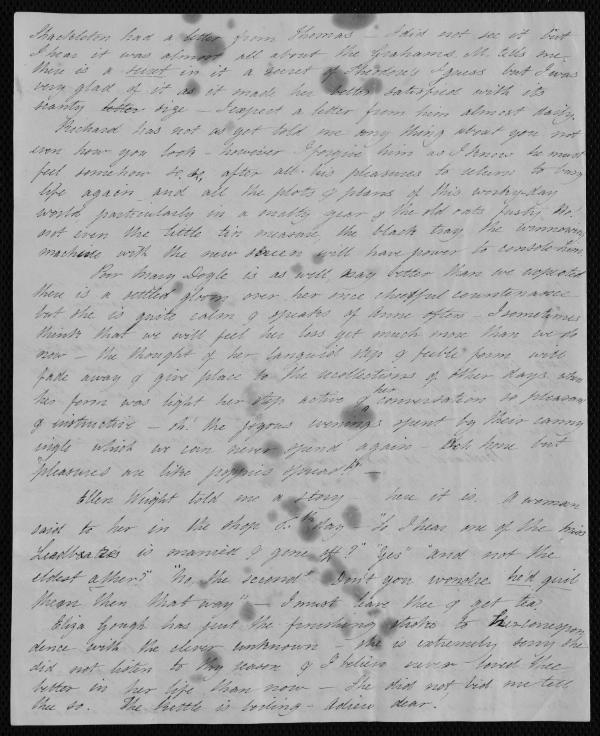 Shackleton had a letter from Thomas – I did not see it but
I hear it was almost all about the Grahams. M. tells me
there is a secret in it a secret of I guess but I was
very glad of it as it made her better satisfied with its
scanty letter size – I expect a letter from him almost daily.
Richard has not as yet told me any thing about you, not
even how you look – however I forgive him as I know he must
feel somehow so, so, after all his pleasures to return to busy
life again and all the plots & plans of this worky-day
world particularly in a malty year & the old oats fusty, too!
not even the little tin measure, the black tray the winnowing
machine with the new screen will have power to console him
Poor Mary Doyle is as well nay better than we expected
there is a settled gloom over her once cheerful countenance
but she is quite calm & speaks of Anne often – I sometimes
think that we will feel her loss yet much more than we do
now – the thought of her languid step & feeble form will
fade away & give place to the recollections of other days when
her form was light her step active & her conversation so pleasant
& instructive – oh! the joyous evenings spent by their canny
ingle which we can never spend again – Och hone but
"pleasures are like poppies spread" –
Ellen Wright told me a story – here it is. A woman
said to her in the shop day – "So I hear one of the Miss
Leadbeaters is married & gone off?" "Yes" "and not the
eldest ather?" "No, the second" "Don't you wonder he'd
them then that way" – I must leave thee & get tea.
Eliza Gough has put the finishing stroke to her correspon
dence with the clever unknown – she is extremely sorry she
did not listen to thy reason & I believe never loved thee
better in her life than now – She did not bid me tell
thee so. The Kettle is boiling – Adieu dear.